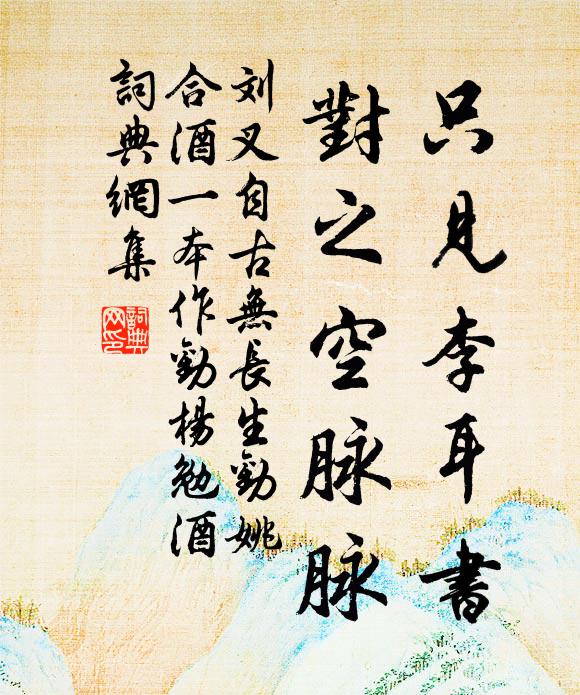 只見李耳書
對之空脉脉
刘叉自古無長生勸姚
合酒一本作勸楊勉酒
詞典網集
詞典
网印